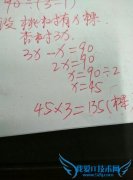 90÷(3-1)
设桃树有x棵
杏树3x
3x-x=90
2x=90
x=90÷2
x=45
45×3=135(棵